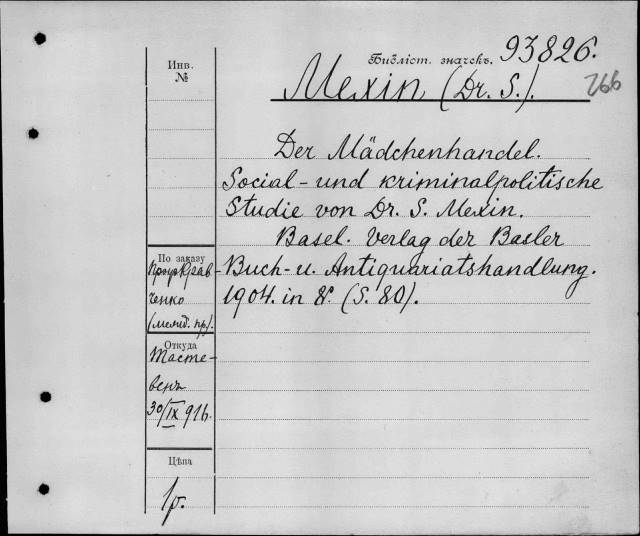 Библіот. значекъ. 93826.
Инв.
№
Mexin (Dr. S.).
766
Der Mädchenhandel.
Social- und kriminalpolitische
Studie von Dr. S. Mexin.
Basel. Verlag der Basler
Buch- u. Antiquariatshandlung.
1904. in 8º. (S. 80).
По заказу
Проф. Крав-
ченко
Откуда
Тасте-
венъ
30/IX 916.
Цѣна
1р.